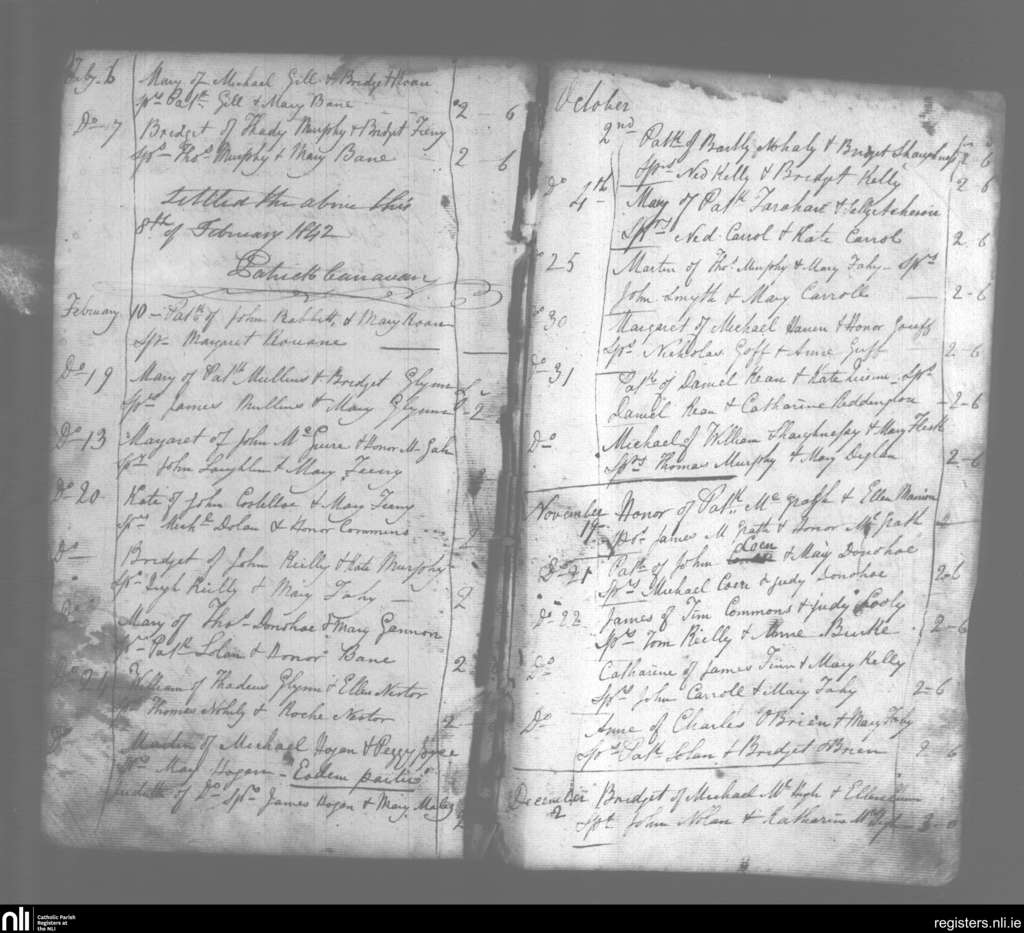 Feby 6 Mary of Michael Gill & Bridget Roan
Sprs Patk Gill & Mary Bane 2 6
Do 7 Bridget of Thady Murphy & Bridget Feeny
Sprs Thos Murphy & Mary Bane 2 6
Settled the above this
8th of February 1842
Patrick Canavan
February 10 - Patk of John Rabbitt, & Mary Roan
Spr Margaret Rouane
Do 19 Mary of Patk Mullins & Bridget Glynn
Sprs James Mullins & Mary Glynn 2
Do 13 Margaret of John McGuire & Honor
Sprs John Laughlin & Mary Feeny
Do 20 Kate of John Costelloe & Mary Feeny
Sprs Dolan & Honor Commins 2
Do Bridget of John Reilly & Kate Murphy
Sprs Hugh Reilly & Mary Fahy 2
Mary of Thos Donohoe & Mary Gannon
Sprs Patk Solan & Honor Bane 2
William of Thadeus Glynn & Ellen Nestor
Thomas Nohily & Roche Nestor 2
Martin of Michael Hogan & Peggy Joyce
Mary Hogan - Eodem
Judith of Do Sprs James Hogan & Mary
October
2nd Patk of Bartly Mohaly & Bridget Shaughnessy 2 6
Sprs Ned Kelly & Bridget Kelly 2-6
Do 4th Mary of Patk
Sprs Ned Carrol & Kate Carrol 2-6
25 Martin of Thos Murphy & Mary Fahy - Sprs
John Smyth & Mary Carroll 2-6
30 Margaret of Michael & Honor
Sprs Nicholas Goff & Anne Goff 2-6
Do 31 Patk of Daniel Kean & Kate Sprs
Daniel Kean & Catharine Reddington 2-6
Do Michael of William Shaughnessy & Mary
Sprs Thomas Murphy & Mary 2-6
November Honor of Patk McGrath & Ellen Mannion
19 Sprs James McGrath & Honor McGrath
Do 21 Patk of John Coen & Mary Donohoe
Sprs Michael Coen & Judy Donohoe 2-6
Do 22 James of Tim Commons & Judy
Sprs Tom Reilly & Anne Burke 2-6
Do Catharine of James Finn & Mary Kelly
Sprs John Carroll & Mary Fahy 2-6
Do Anne of Charles O'Brien & Mary Fahy
Sprs Patk Solan & Bridget OBrien 2 6
December Bridget of Michael McHugh & Ellen
2 Sprs John Nolan & Katharine
nli Catholic Parish
Registers at
the NLI
registers.nli.ie